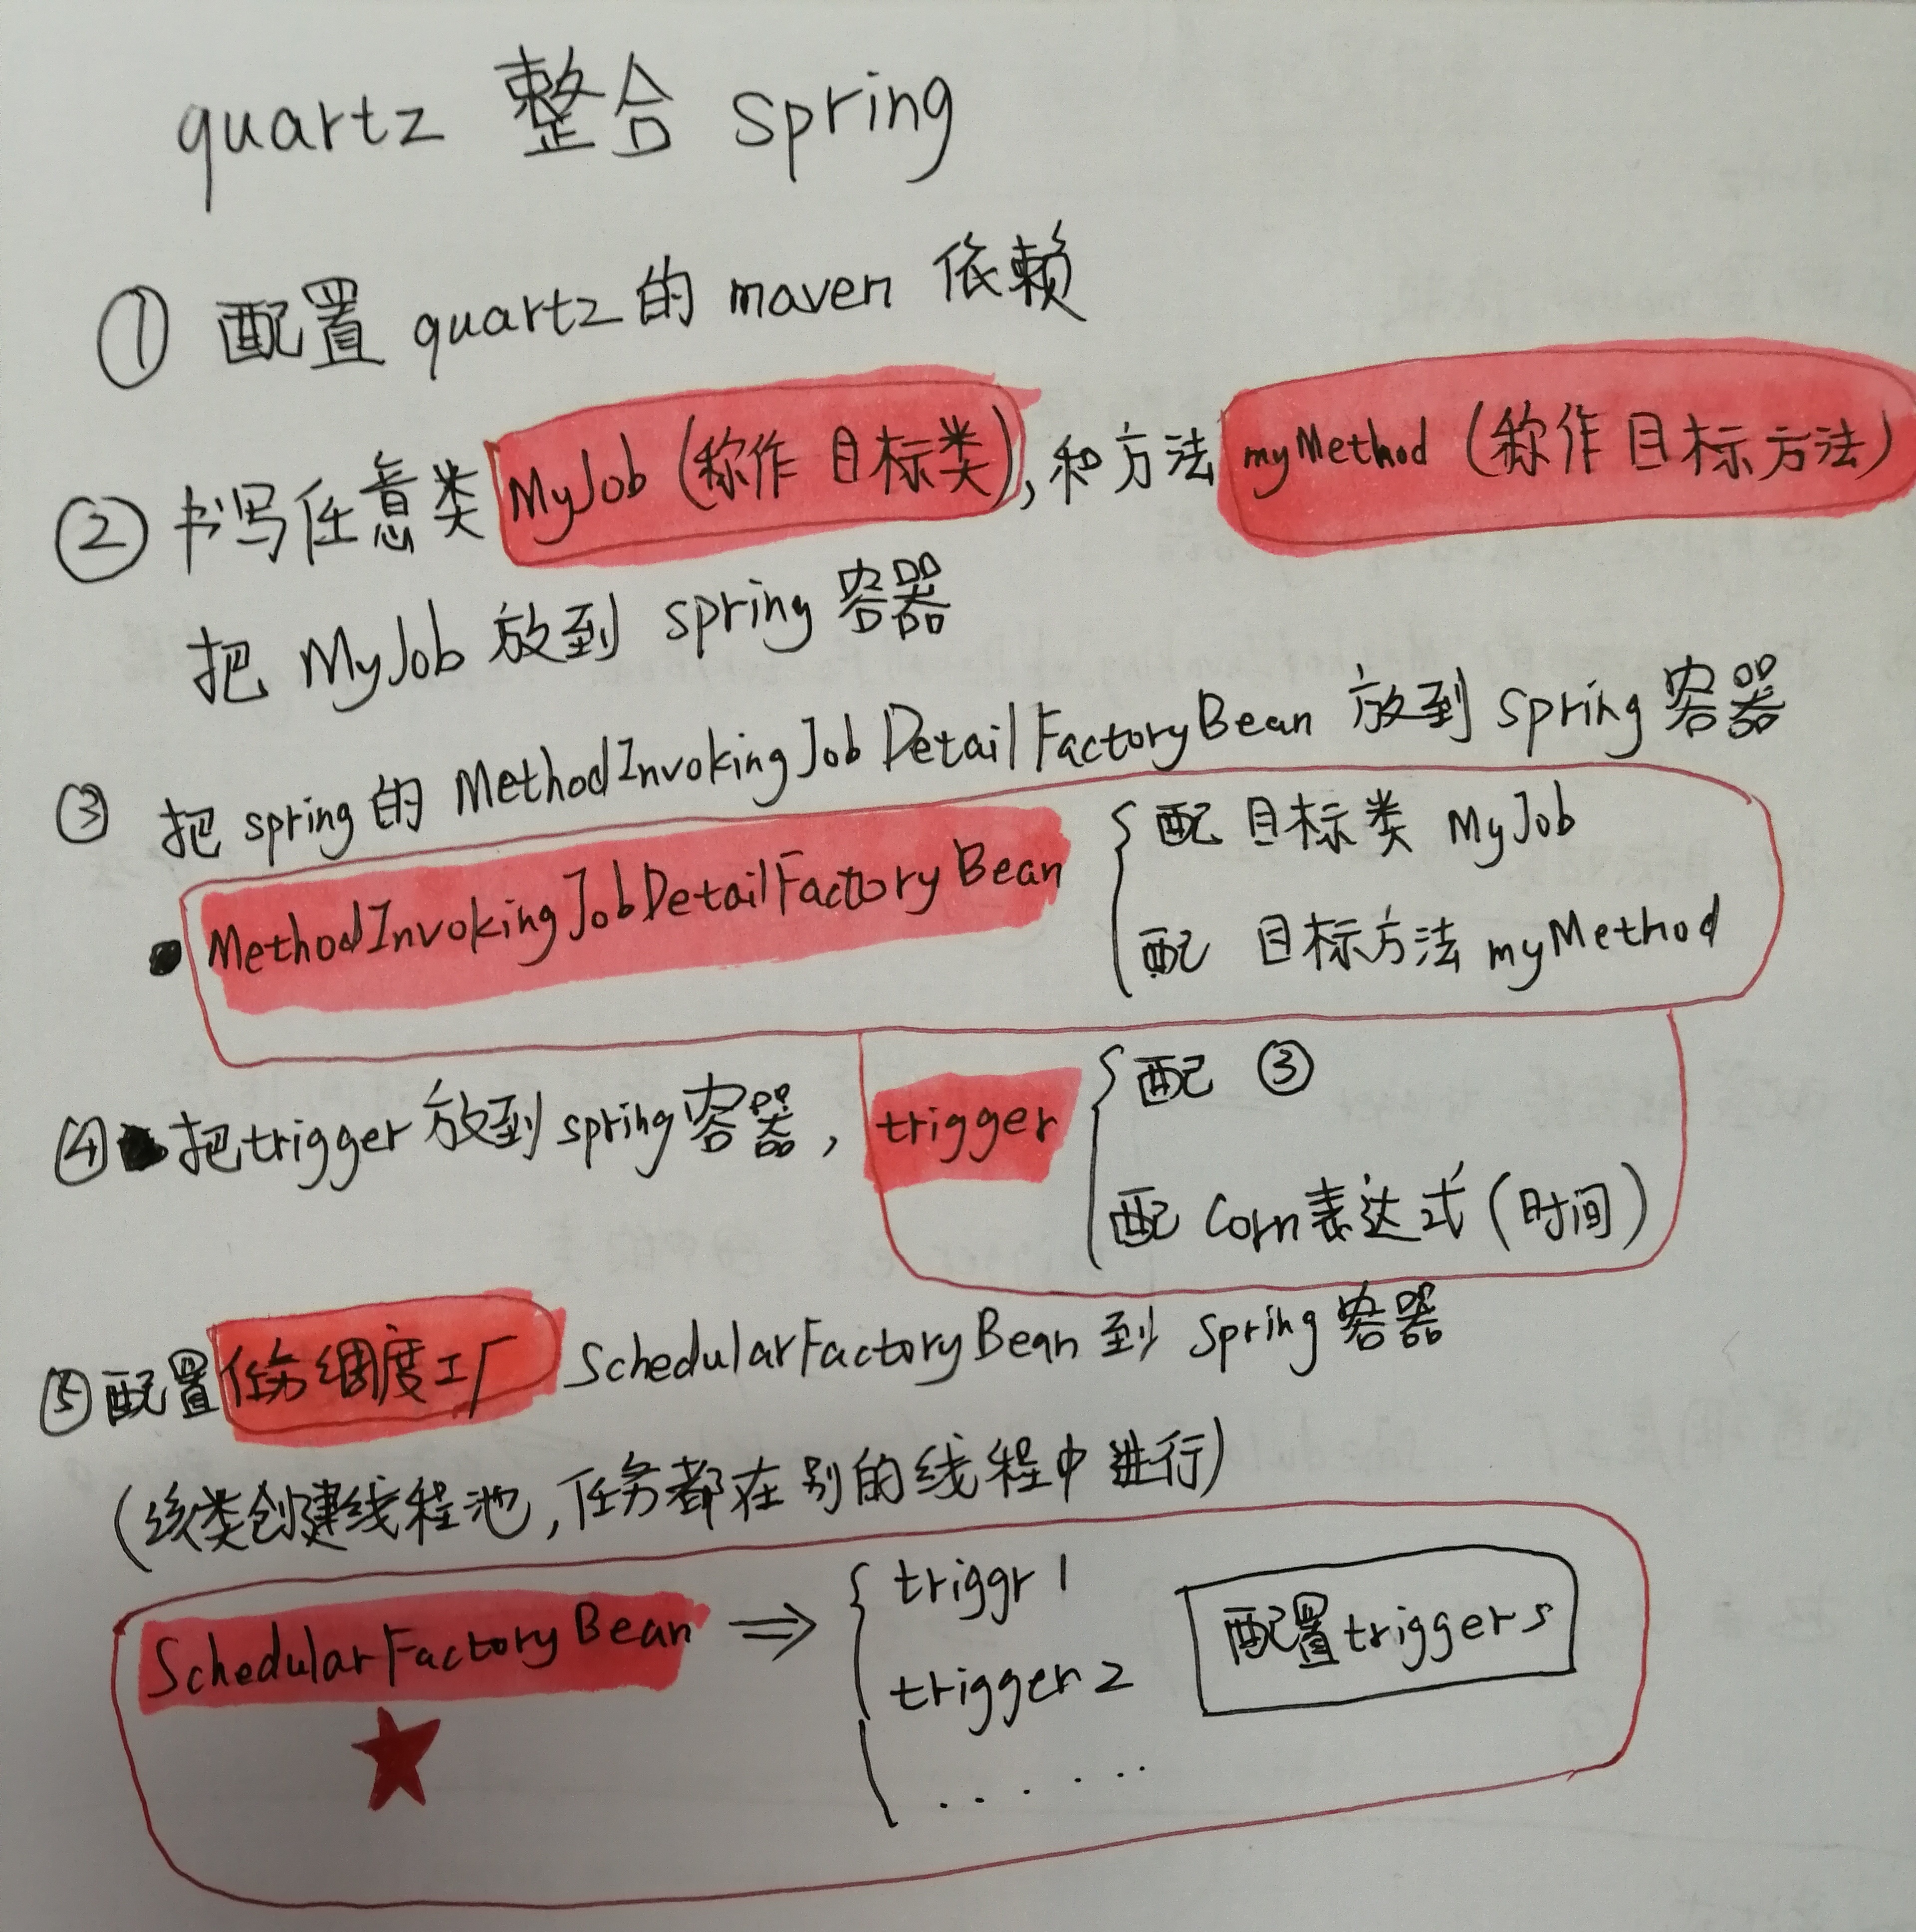 quartz 整合 spring
① 配置 quartz 的 maven 依赖
② 书写任意类 MyJob (称作 目标类), 和方法 myMethod (称作 目标方法)
把 MyJob 放到 spring 容器
③ 把 spring 的 MethodInvokingJobDetailFactoryBean 放到 spring 容器
MethodInvokingJobDetailFactoryBean
配 目标类 MyJob
配 目标方法 myMethod
④ 把trigger 放到 spring 容器, trigger
配 ③
配 Corn表达式 (时间)
⑤ 配置 任务调度工厂 SchedularFactoryBean 到 Spring 容器
(该类创建线程池, 任务都在别的线程中进行)
SchedularFactoryBean ⇒
triggr 1
trigger 2
. . . . . .
配置triggers